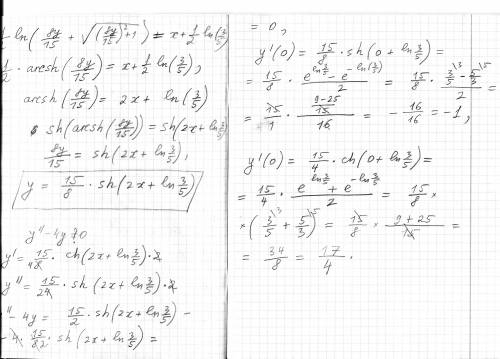 1/2 ln(8y/15 + √((8y/15)²+1)) = x + 1/2 ln(3/5)
1/2 · arcsh(8y/15) = x + 1/2 ln(3/5),
arcsh(8y/15) = 2x + ln(3/5)
sh(arcsh(8y/15)) = sh(2x + ln 3/5)
8y/15 = sh(2x + ln 3/5),
y = 15/8 · sh(2x + ln 3/5)
y'' - 4y = 0
y' = 15/8 · ch(2x + ln 3/5) · 2
y'' = 15/4 · sh(2x + ln 3/5) · 2
y'' - 4y = 15/2 · sh(2x + ln 3/5) -
- 4 · 15/8 · sh(2x + ln 3/5) =
= 0,
y'(0) = 15/8 · sh(0 + ln 3/5) =
= 15/8 · (e^(ln 3/5) - e^(-ln(3/5)))/2 = 15/8 · (3/5 - 5/3)/2 =
= 15/1 · (9-25)/15 / 16 = - 16/16 = -1,
y'(0) = 15/4 · ch(0 + ln 3/5) =
= 15/4 · (e^(ln 3/5) + e^(-ln 3/5))/2 = 15/8 ×
× (3/5 + 5/3) = 15/8 × (9+25)/15 =
= 34/8 = 17/4 .